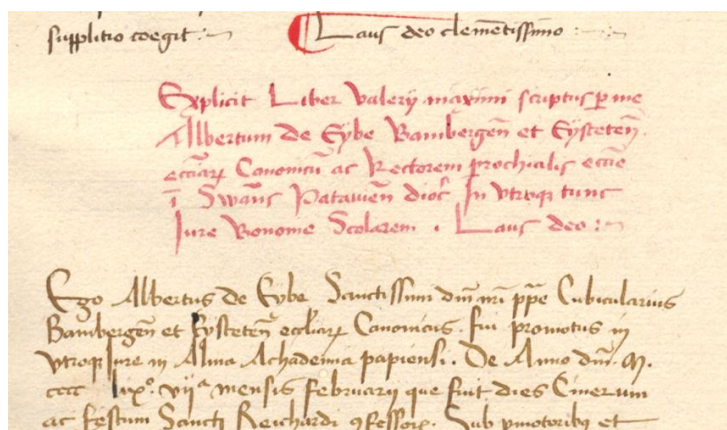 supplitio coegit :~ Laus deo clementissimo :~
Explicit Liber Valerij maximi scriptus p me
Albertum de Eybe Bambergen̄ et Eysteten̄
ecciaꝝ Canonicū ac Rectorem prochialis eccie
ī Swans Patavien̄ dioc̄ In vtroqꝫ tunc
Iure Bononie Scolarem . Laus deo :~
Ego Albertus de Eybe Sanctissimi dn̄i nr̄i pp̄e Cubicularius
Bambergen̄ et Eysteten̄ eccliaꝝ Canonicus . fui promotus in
vtroqꝫ Iure in Alma Achademia papiensi . De Anno dn̄i . M.
cccc lixº. vijª mensis februarij que fuit dies Cinerum
ac festum Sancti Reichardi ꝯfessorꝭ . Sub pmotoribꝫ et